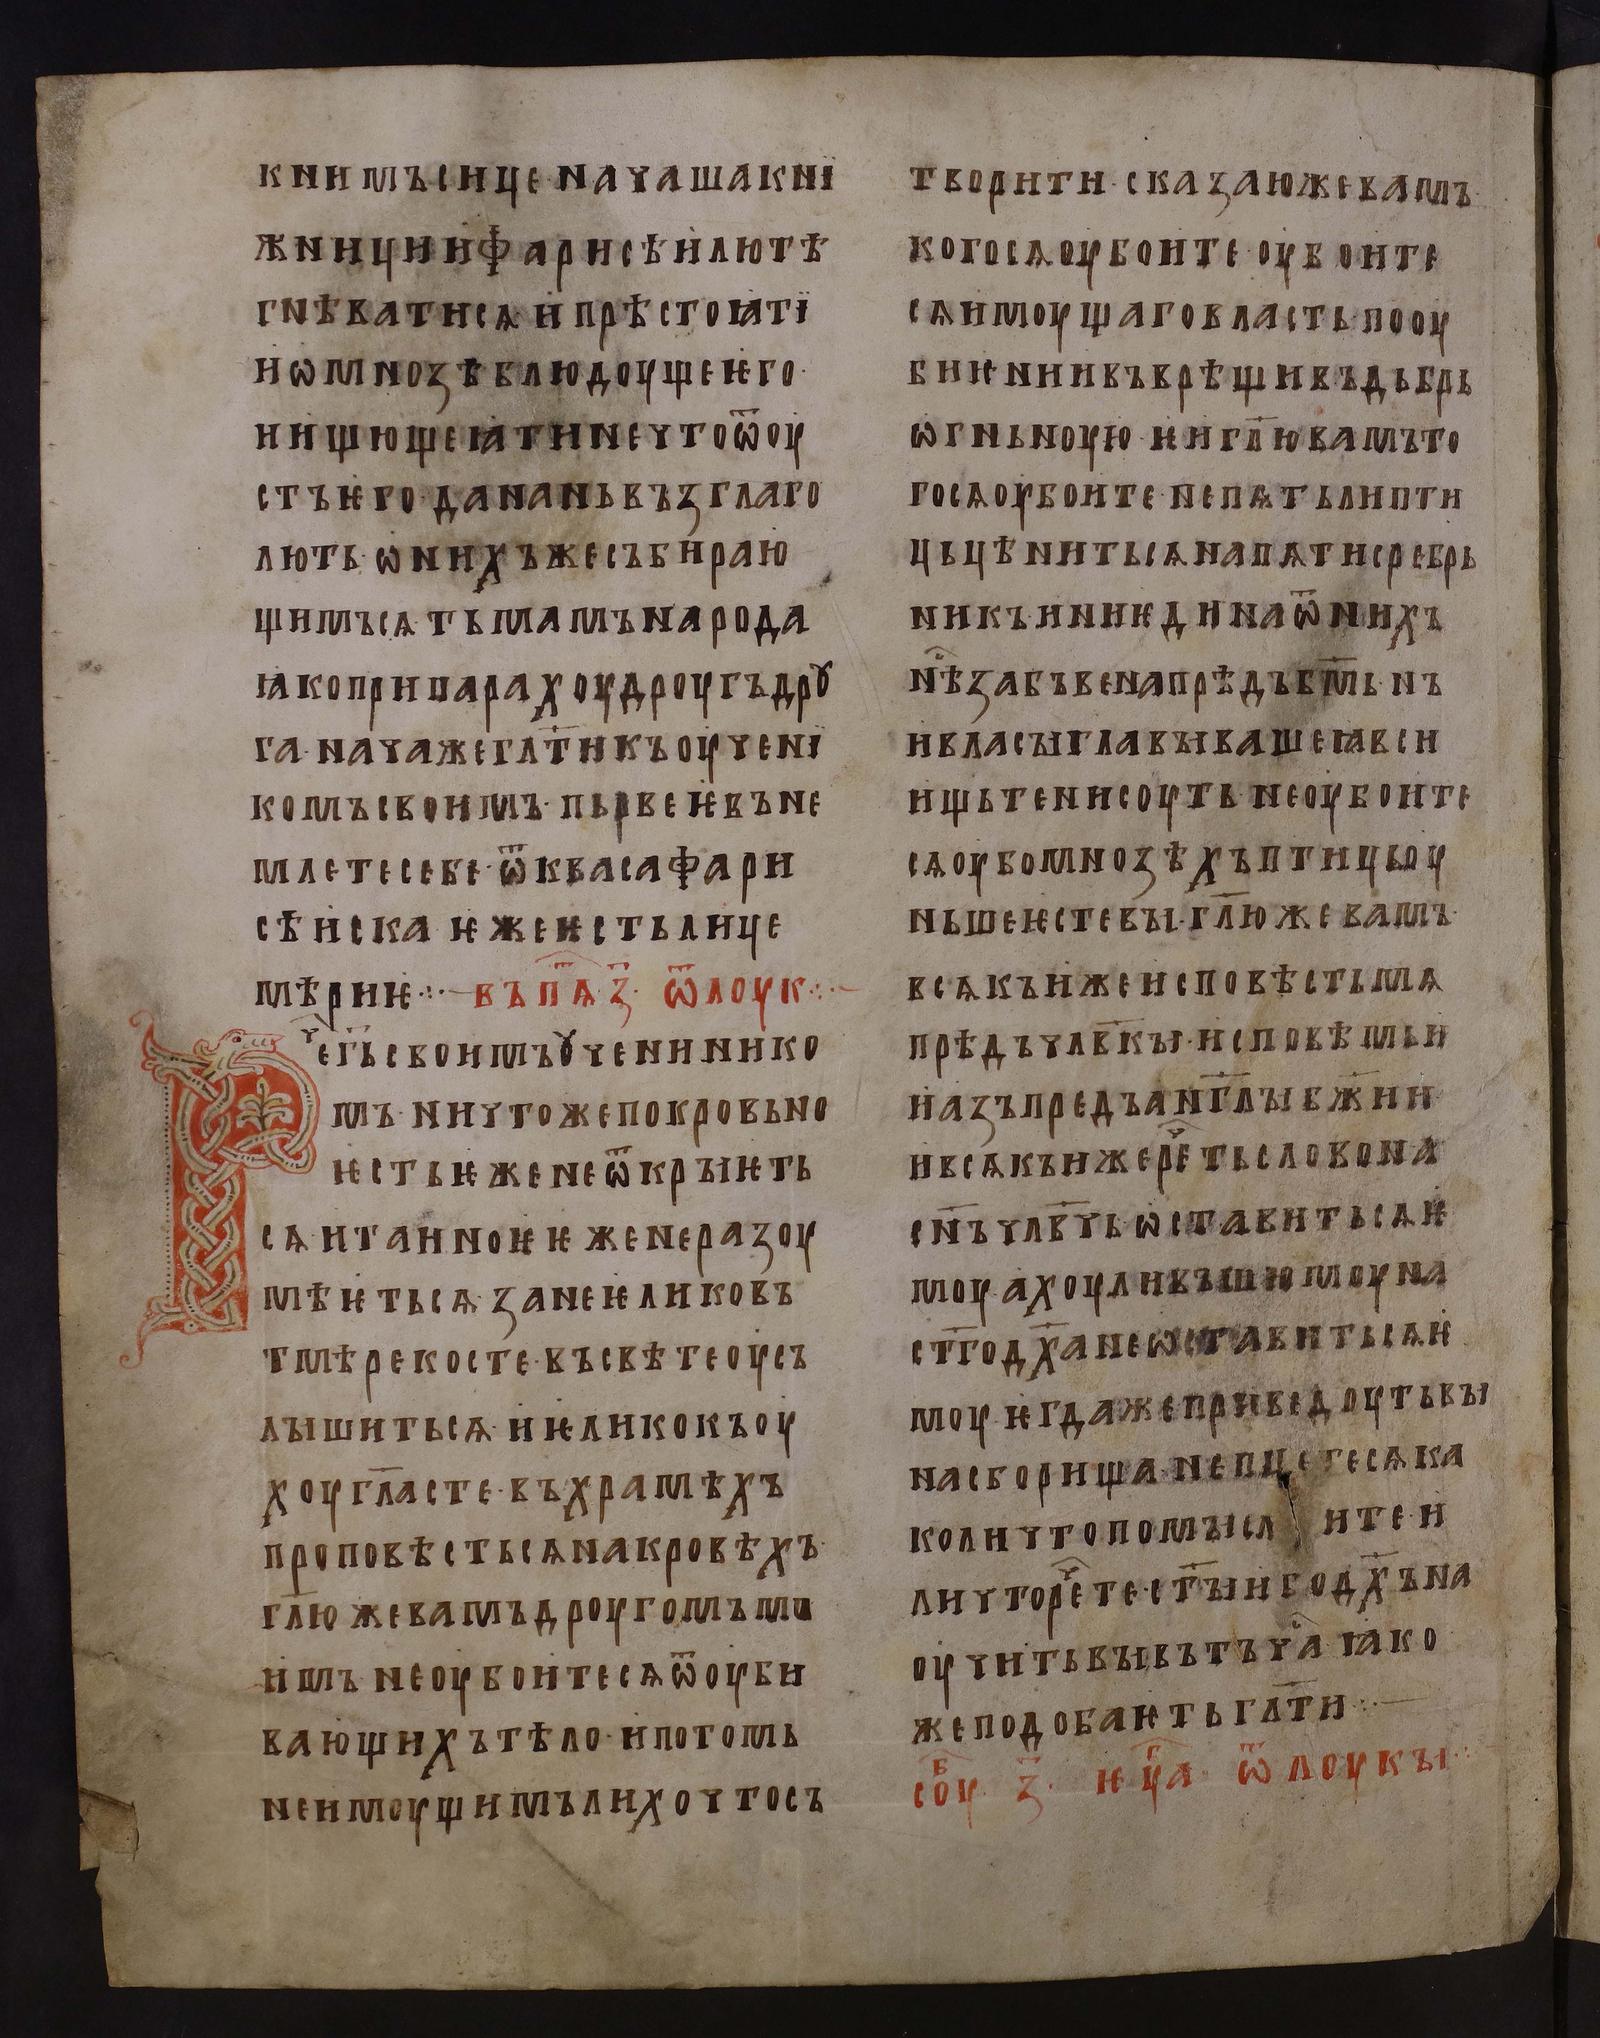 к нимъ сице· начаша кнї
жници и фарисѣи лютѣ
гнѣватисѧ и прѣстоꙗтї
и ѡ мнозѣ блюдоуще ѥго·
ни щюще ꙗти нечто ѿ оу
стъ ѥго· да нань възглаго
лють· ѡ нихъже събираю
щимъсѧ тьмамъ народа
ꙗко припарахоу дроугъ дрꙋ
га· начаже гл҃ти къ оученї
комъ своимъ· пьрвеѥ въне
млете себе· ѿ кваса фари
сѣиска ѥже ѥсть лице
мѣриѥ ⁘ въ пѧ҃· з҃· ѿ лоук ⁘
Рече г҃ь своимъ ꙋченинико
мъ· ничтоже покровьно
ѥсть ѥже не ѿкрыѥть
сѧ и таиноѥ ѥже не разоу
мѣѥтьсѧ· зане ѥлико въ
тмѣ рекосте· въ свѣте оусъ
лышитьсѧ· и ѥлико къ оу
хоу гл҃асте· въ храмѣхъ
проповѣстьсѧ на кровѣхъ·
гл҃ю же вамъ дроугомъ мо
имъ не оубоитесѧ ѿ оуби
вающихъ тѣло· и потомь
не имоущимъ лихо что съ
творити· сказаю же вамъ
кого сѧ оубоите· оубоите
сѧ имоущаго власть по оу
биѥнии въврѣщи въ дьбрь
ѡгньноую· ѥи гл҃ю вамъ то
го сѧ оубоите· не пѧть ли пти
ць цѣнитьсѧ на пѧти сребрь
никъ и ни ѥдина ѿ нихъ
нѣ забъвена прѣдъ бм҃ь· нъ
и власы главы вашеꙗ вси
ищьтени соуть· не оубоите
сѧ оубо мнозѣхъ птиць оу
ньше ѥсте вы· гл҃ю же вамъ·
всѧкъ иже исповѣсть мѧ
прѣдъ члв҃кы· исповѣмь и
и азъ предъ анг҃лы бж҃ии
и всѧкъ иже рече҃ть слово на
сн҃ъ члв҃чь ѡставитьсѧ ѥ
моу· а хоулившюмоу на
ст҃го дх҃а не ѡставитьсѧ ѥ
моу· ѥгдаже приведоуть вы
на сборища· не пцетесѧ ка
ко ли что помыслите· и
ли что рече҃те· ст҃ыи бо дх҃ъ на
оучить вы въ тъ ча҃ ꙗко
же подобаѥть гл҃ти ⁘
соуб҃· з҃· ѥуг҃а· ѿ лоукы ⁘